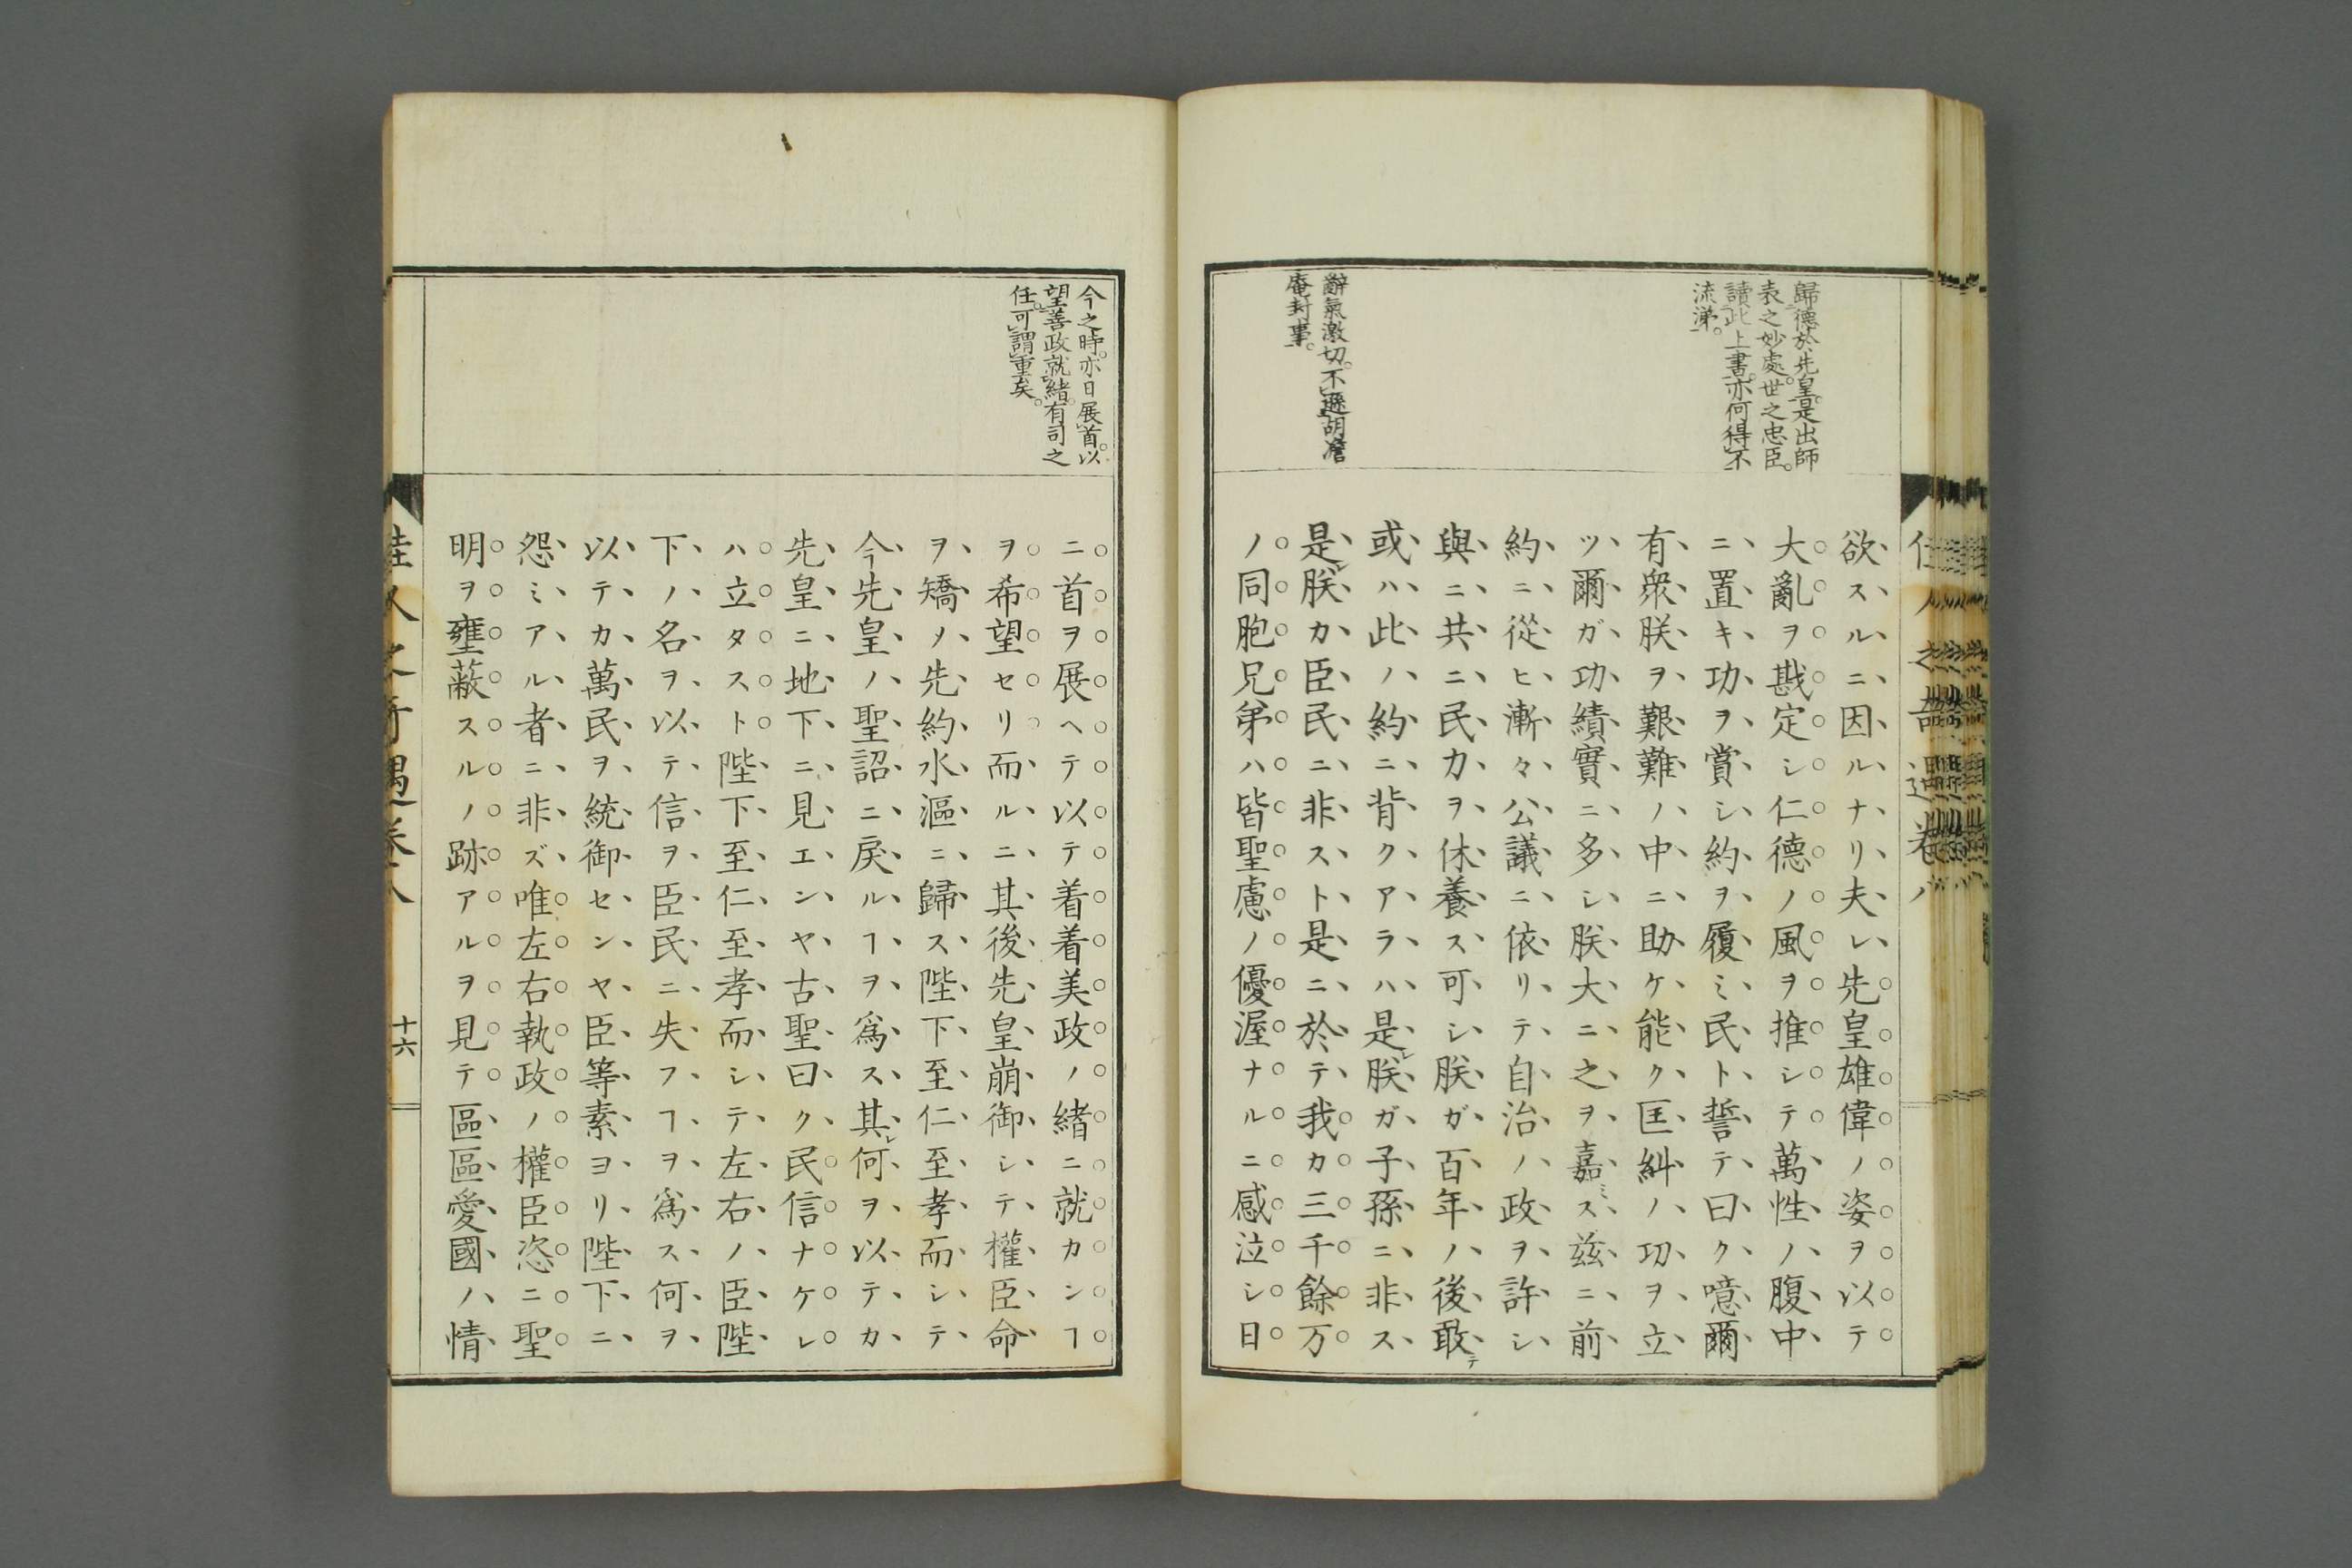 歸德於先皇。是出師
表之妙處。世之忠臣。
讀此上書。亦何得不
流涕。
辭氣激切。不遜胡澹
庵封事。
欲スルニ因ルナリ夫レ先皇雄偉ノ姿ヲ以テ
大亂ヲ戡定シ仁德ノ風ヲ推シテ萬性ノ腹中
ニ置キ功ヲ賞シ約ヲ履ミ民ト誓テ曰ク噫爾
有衆朕ヲ艱難ノ中ニ助ケ能ク匡糾ノ功ヲ立
ツ爾ガ功績實ニ多シ朕大ニ之ヲ嘉ミス茲ニ前
約ニ從ヒ漸々公議ニ依リテ自治ノ政ヲ許シ
與ニ共ニ民力ヲ休養ス可シ朕ガ百年ノ後敢テ
或ハ此ノ約ニ背クアラハ是レ朕ガ子孫ニ非ス
是レ朕カ臣民ニ非スト是ニ於テ我カ三千餘万
ノ同胞兄弟ハ皆聖慮ノ優渥ナルニ感泣シ日
今之時。亦日展首。以
望善政就緒。有司之
任。可謂重矣。
ニ首ヲ展ヘテ以テ着着美政ノ緒ニ就カンヿ
ヲ希望セリ而ルニ其後先皇崩御シテ權臣命
ヲ矯メ先約水漚ニ歸ス陛下至仁至孝而シテ
今先皇ノ聖詔ニ戾ルヿヲ爲ス其レ何ヲ以テカ
先皇ニ地下ニ見エンヤ古聖曰ク民信ナケレ
ハ立タスト陛下至仁至孝而シテ左右ノ臣陛
下ノ名ヲ以テ信ヲ臣民ニ失フヿヲ爲ス何ヲ
以テカ萬民ヲ統御センヤ臣等素ヨリ陛下ニ
怨ミアル者ニ非ズ唯左右執政ノ權臣恣ニ聖
明ヲ壅蔽スルノ跡アルヲ見テ區區愛國ノ情
佳人之奇遇卷八
十六